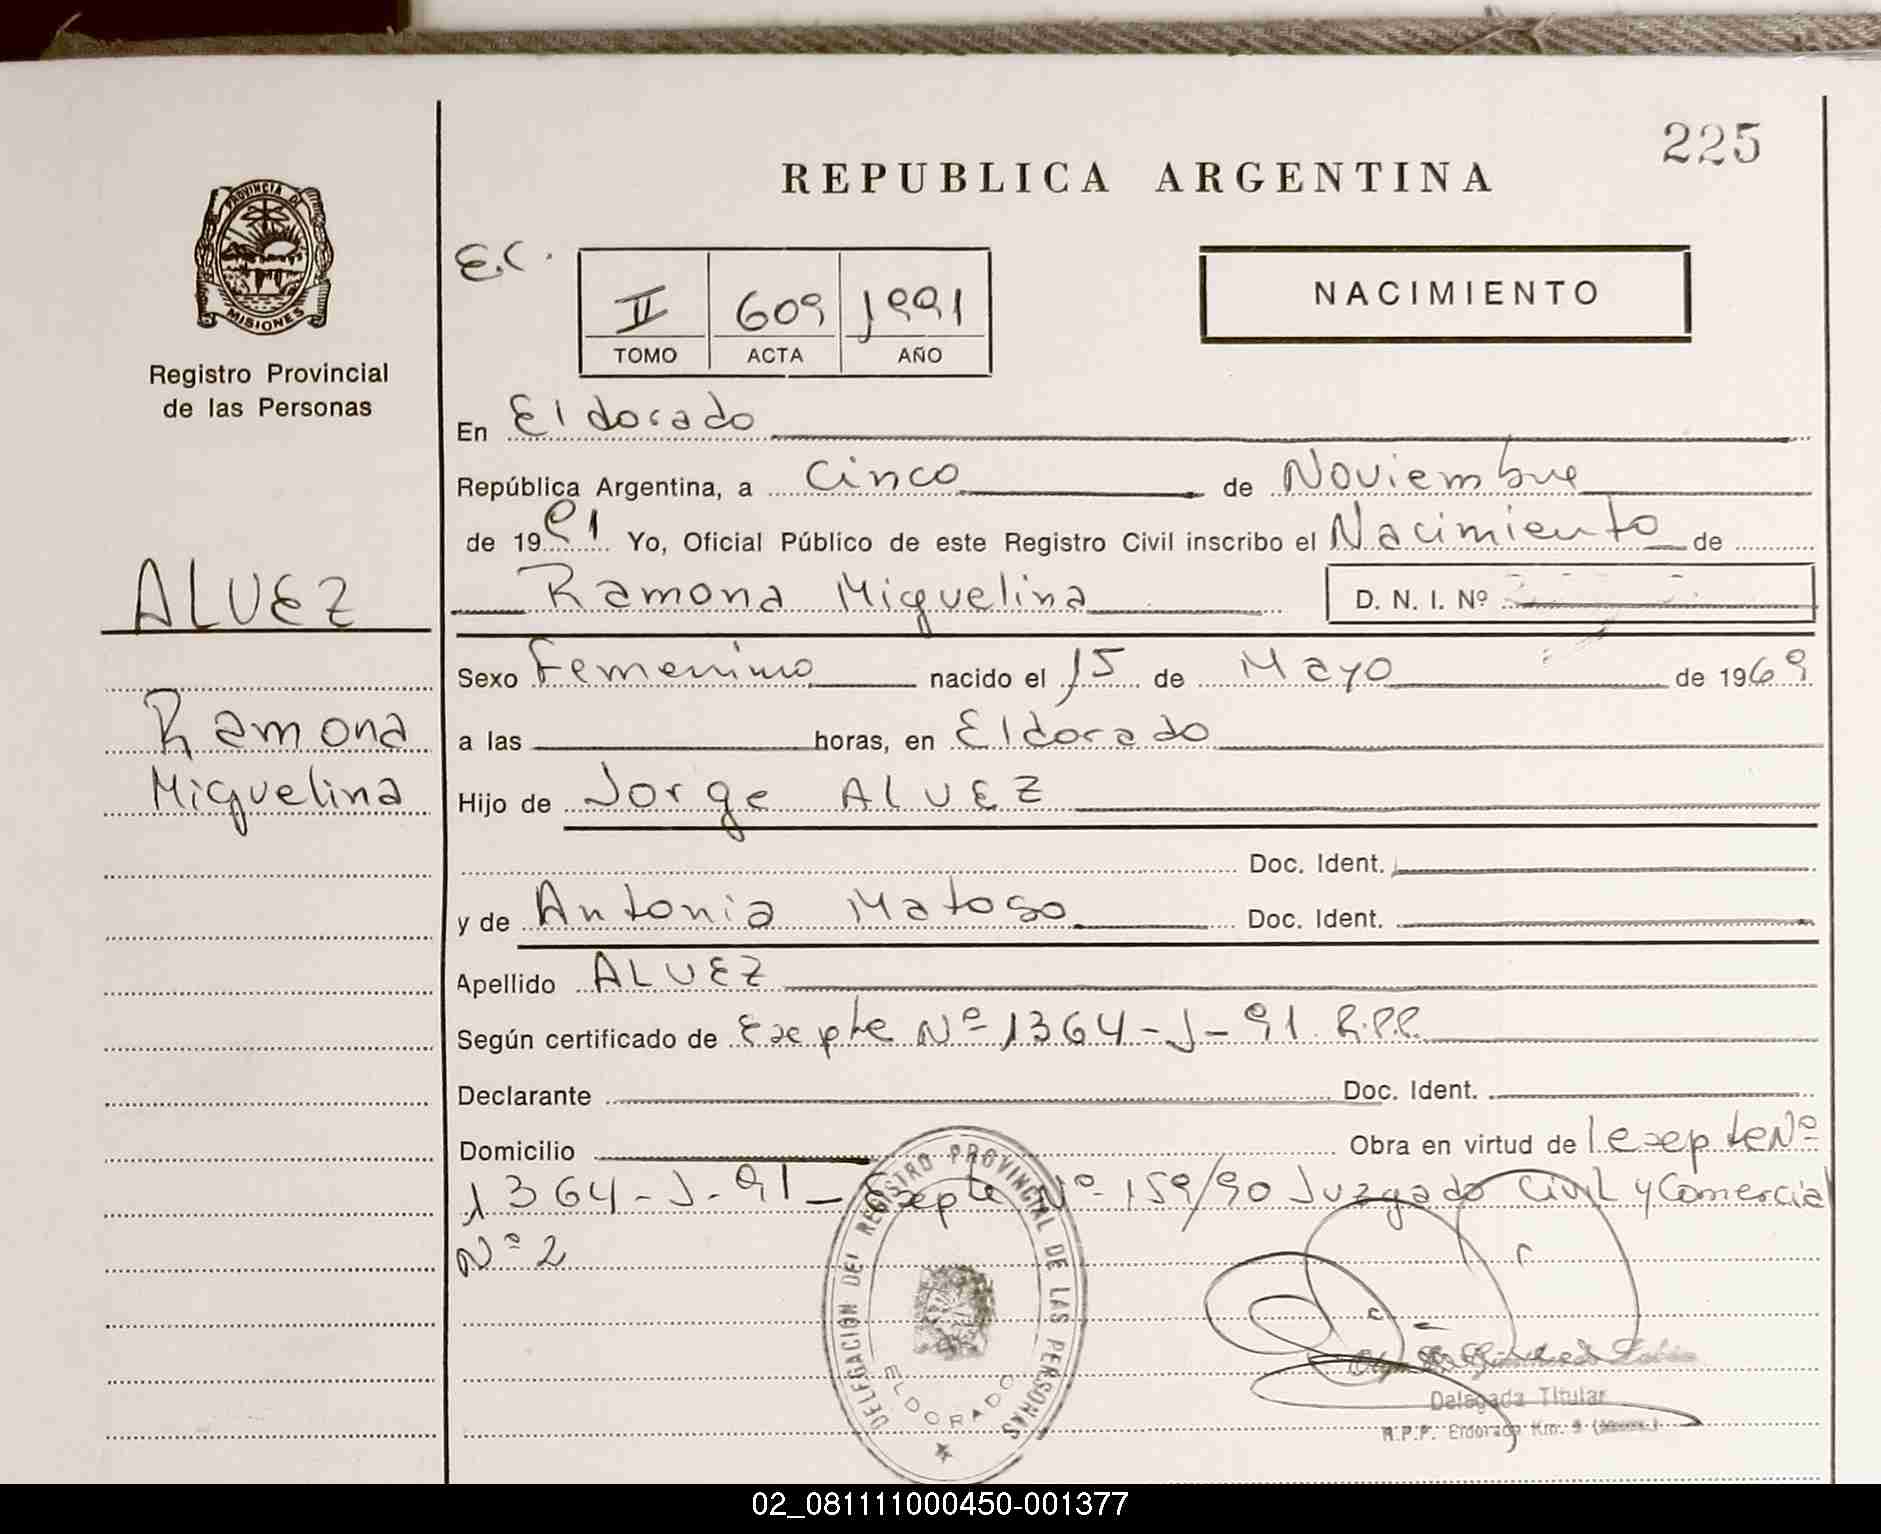 225
REPUBLICA ARGENTINA
PROVINCIA DE
MISIONES
Registro Provincial
de las Personas
E.C.
II 609 1991
TOMO ACTA AÑO
NACIMIENTO
En Eldorado
República Argentina, a Cinco de Noviembre
de 1991 Yo, Oficial Público de este Registro Civil inscribo el Nacimiento de
ALVEZ
Ramona Miguelina D. N. I. Nº
Sexo Femenino nacido el 15 de Mayo de 1969
Ramona
a las horas, en Eldorado
Miguelina
Hijo de Jorge ALVEZ
Doc. Ident.
y de Antonia Matoso Doc. Ident.
Apellido ALVEZ
Según certificado de Expte Nº 1364-J-91 R.P.P.
Declarante Doc. Ident.
Domicilio Obra en virtud de Expte Nº
1364-J-91 - Expte Nº 159/90 Juzgado Civil y Comercial
Nº 2
DELEGACION DEL REGISTRO PROVINCIAL DE LAS PERSONAS
ELDORADO
Delegada Titular
R.P.P. Eldorado Km. 9
02_081111000450-001377